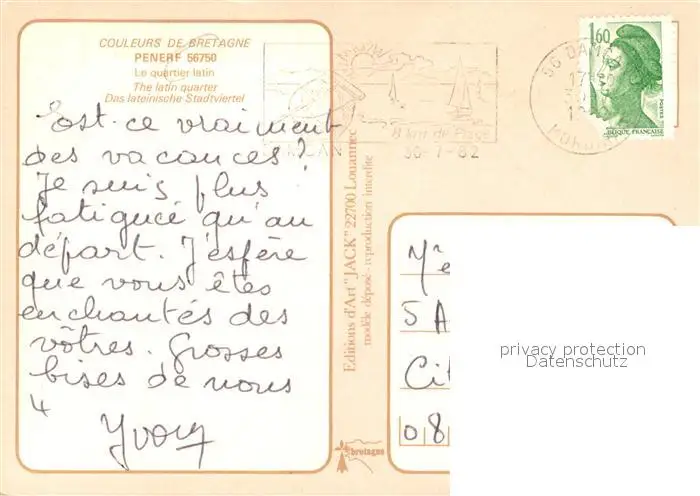 COULEURS DE BRETAGNE
PENERF 56750
Le quartier latin
The latin quarter
Das lateinische Stadtviertel
Est-ce vraiment
des vacances?
Je suis plus
fatiguée qu'au
départ. J'espère
que vous êtes
enchantés des
vôtres. Grosses
bises de nous
4
Editions d'Art "JACK" 22700 Louannec
modèle déposé - reproduction interdite
bretagne
30-7-82
56 DAM
17
1,60
POSTES
REPUBLIQUE FRANCAISE
5 A
Cit
08
privacy protection
Datenschutz